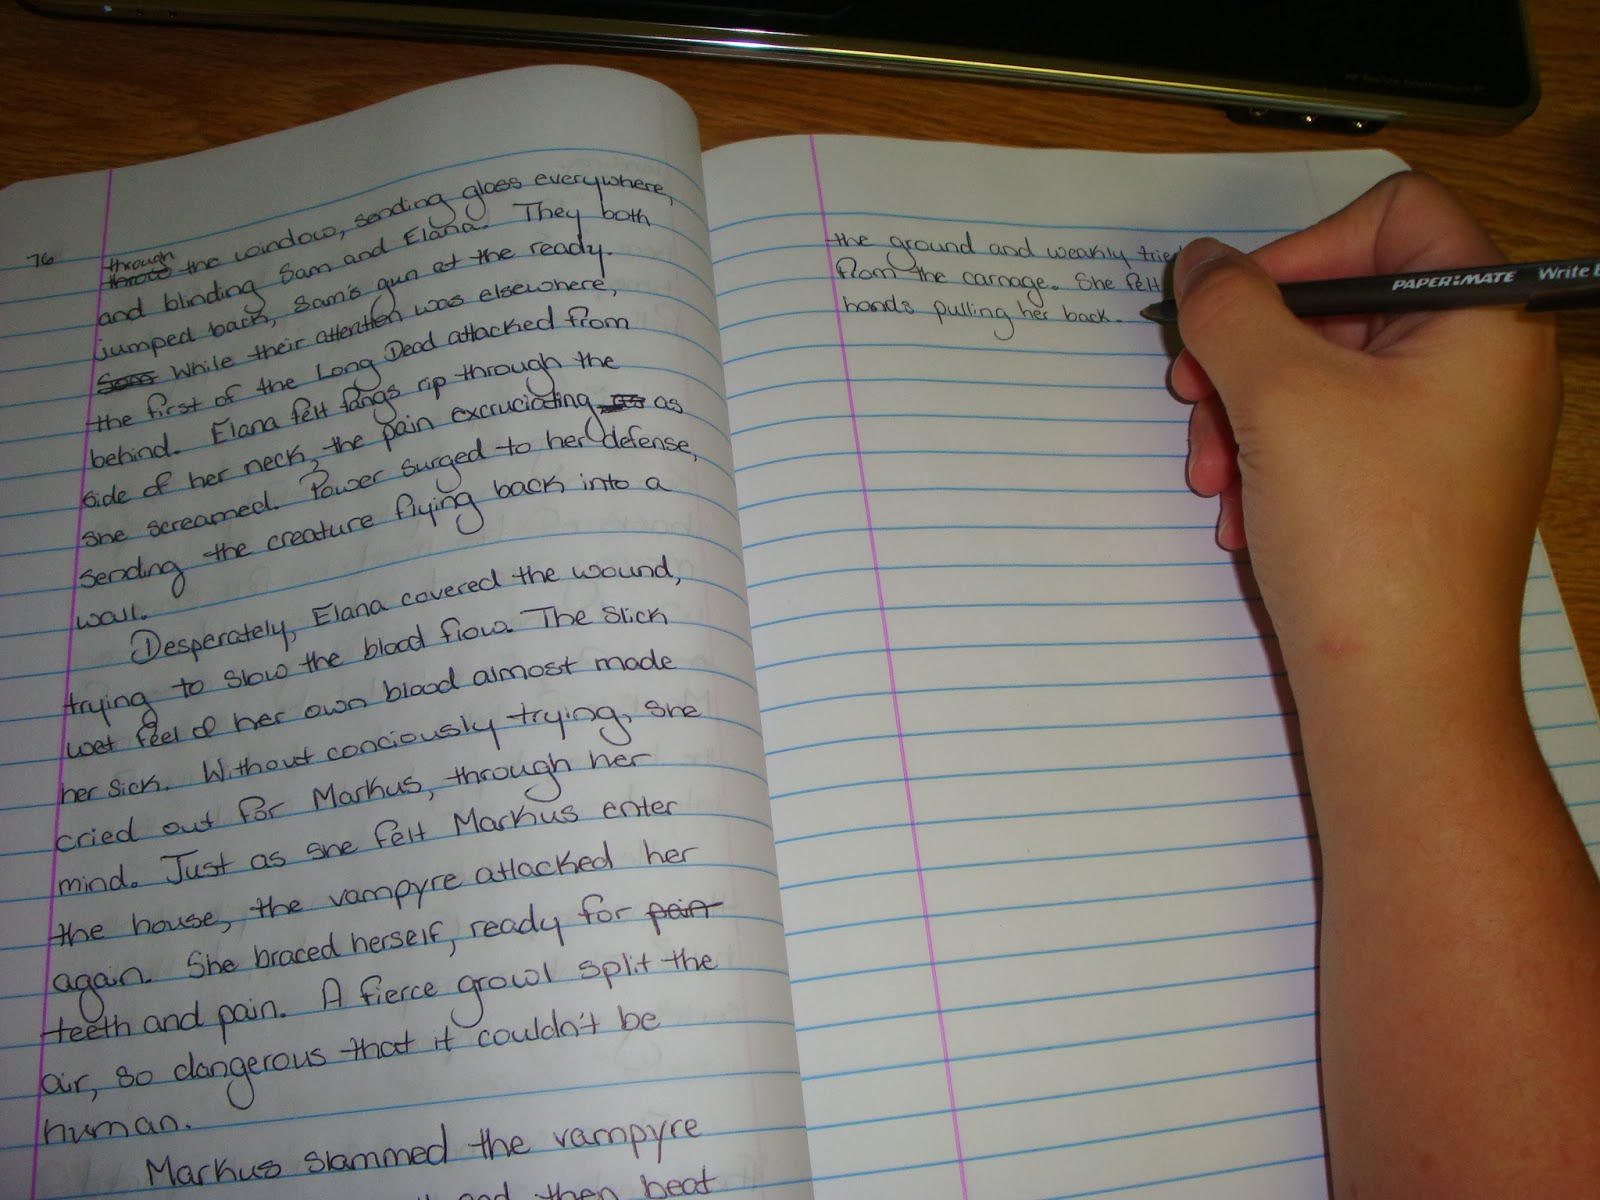 76
through
the window, sending glass everywhere,
and blinding Sam and Elana. They both
jumped back, Sam's gun at the ready.
While their attention was elsewhere,
the first of the Long Dead attacked from
behind. Elana felt fangs rip through the
side of her neck, the pain excruciating as
she screamed. Power surged to her defense,
sending the creature flying back into a
wall.
Desperately, Elana covered the wound,
trying to slow the blood flow. The slick
wet feel of her own blood almost made
her sick. Without conciously trying, she
cried out for Markus, through her
mind. Just as she felt Markus enter
the house, the vampyre attacked her
again. She braced herself, ready for pain
teeth and pain. A fierce growl split the
air, so dangerous that it couldn't be
human.
Markus slammed the vampyre
and then beat
the ground and weakly
from the carnage. She felt
hands pulling her back.
PAPER:MATE Write